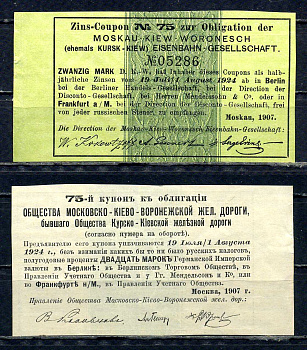 Zins-Coupon № 75 zur Obligation der
MOSKAU-KIEW-WORONESCH
(ehemals KURSK-KIEW) EISENBAHN-GESELLSCHAFT.
№05286
ZWANZIG MARK D. R.-W. hat Inhaber dieses Coupons als halb-
jährliche Zinsen vom 19 Juli/1 August 1924 ab in Berlin
bei der Berliner Handels-Gesellschaft, bei der Direction der
Disconto-Gesellschaft, bei Herren Mendelssohn & Co., oder in
Frankfurt a/M. bei der Direction der Disconto-Gesellschaft, frei
von jeder russischen Steuer, zu empfangen.
Moskau, 1907.
Die Direction der Moskau-Kiew-Woronesch Eisenbahn-Gesellschaft:
75-й купонъ къ облигаціи
ОБЩЕСТВА МОСКОВСКО-КІЕВО-ВОРОНЕЖСКОЙ ЖЕЛ. ДОРОГИ,
бывшаго Общества Курско-Кіевской желѣзной дороги
(согласно нумера на оборотѣ).
Предъявителю сего купона уплачиваются 19 Іюля/1 Августа
1924 г., безъ взиманія какихъ бы то ни было русскихъ налоговъ,
полугодовые проценты ДВАДЦАТЬ МАРОКЪ Германской Имперской
валюты въ Берлинѣ: въ Берлинскомъ Торговомъ Обществѣ, въ
Правленіи Учетнаго Общества и у Гг. Мендельсонъ и Ко, или
во Франкфуртѣ н/М., въ Правленіи Учетнаго Общества.
Москва, 1907.
Правленіе Общества Московско-Кіево-Воронежской жел. дор.: